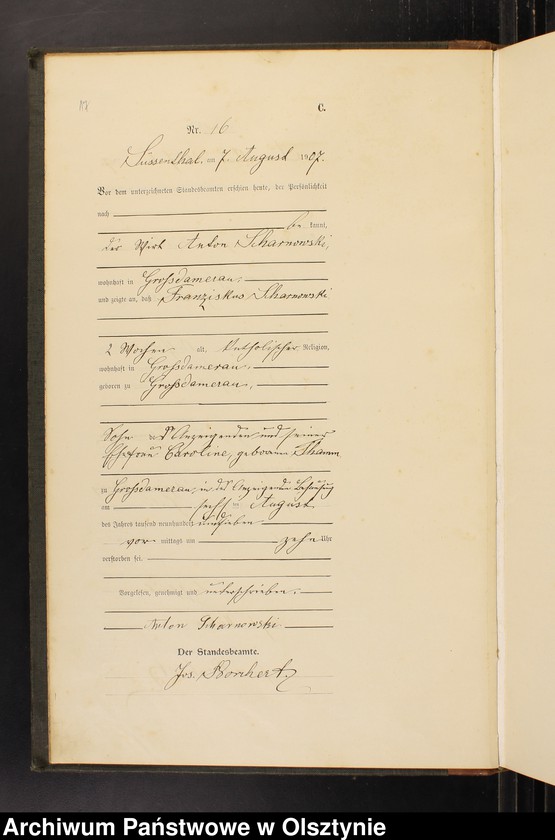 C.
Nr. 16
Süssenthal am 7. August 1907.
Vor dem unterzeichneten Standesbeamten erschien heute, der Persönlichkeit
nach
be kannt,
der Wirt Anton Scharnowski,
wohnhaft in Großdamerau,
und zeigte an, daß Franziskus Scharnowski
2 Wochen alt, katholischer Religion,
wohnhaft in Großdamerau,
geboren zu Großdamerau,
Sohn des Anzeigenden und seiner
Ehefrau Caroline, geborenen
zu Großdamerau, in des Anzeigenden Behausung
am sechsten August
des Jahres tausend neunhundert und sieben
vor mittags um zehn Uhr
verstorben sei.
Vorgelesen, genehmigt und unterschrieben.
Anton Scharnowski
Der Standesbeamte.
Jos. Borchert
Archiwum Państwowe w Olsztynie